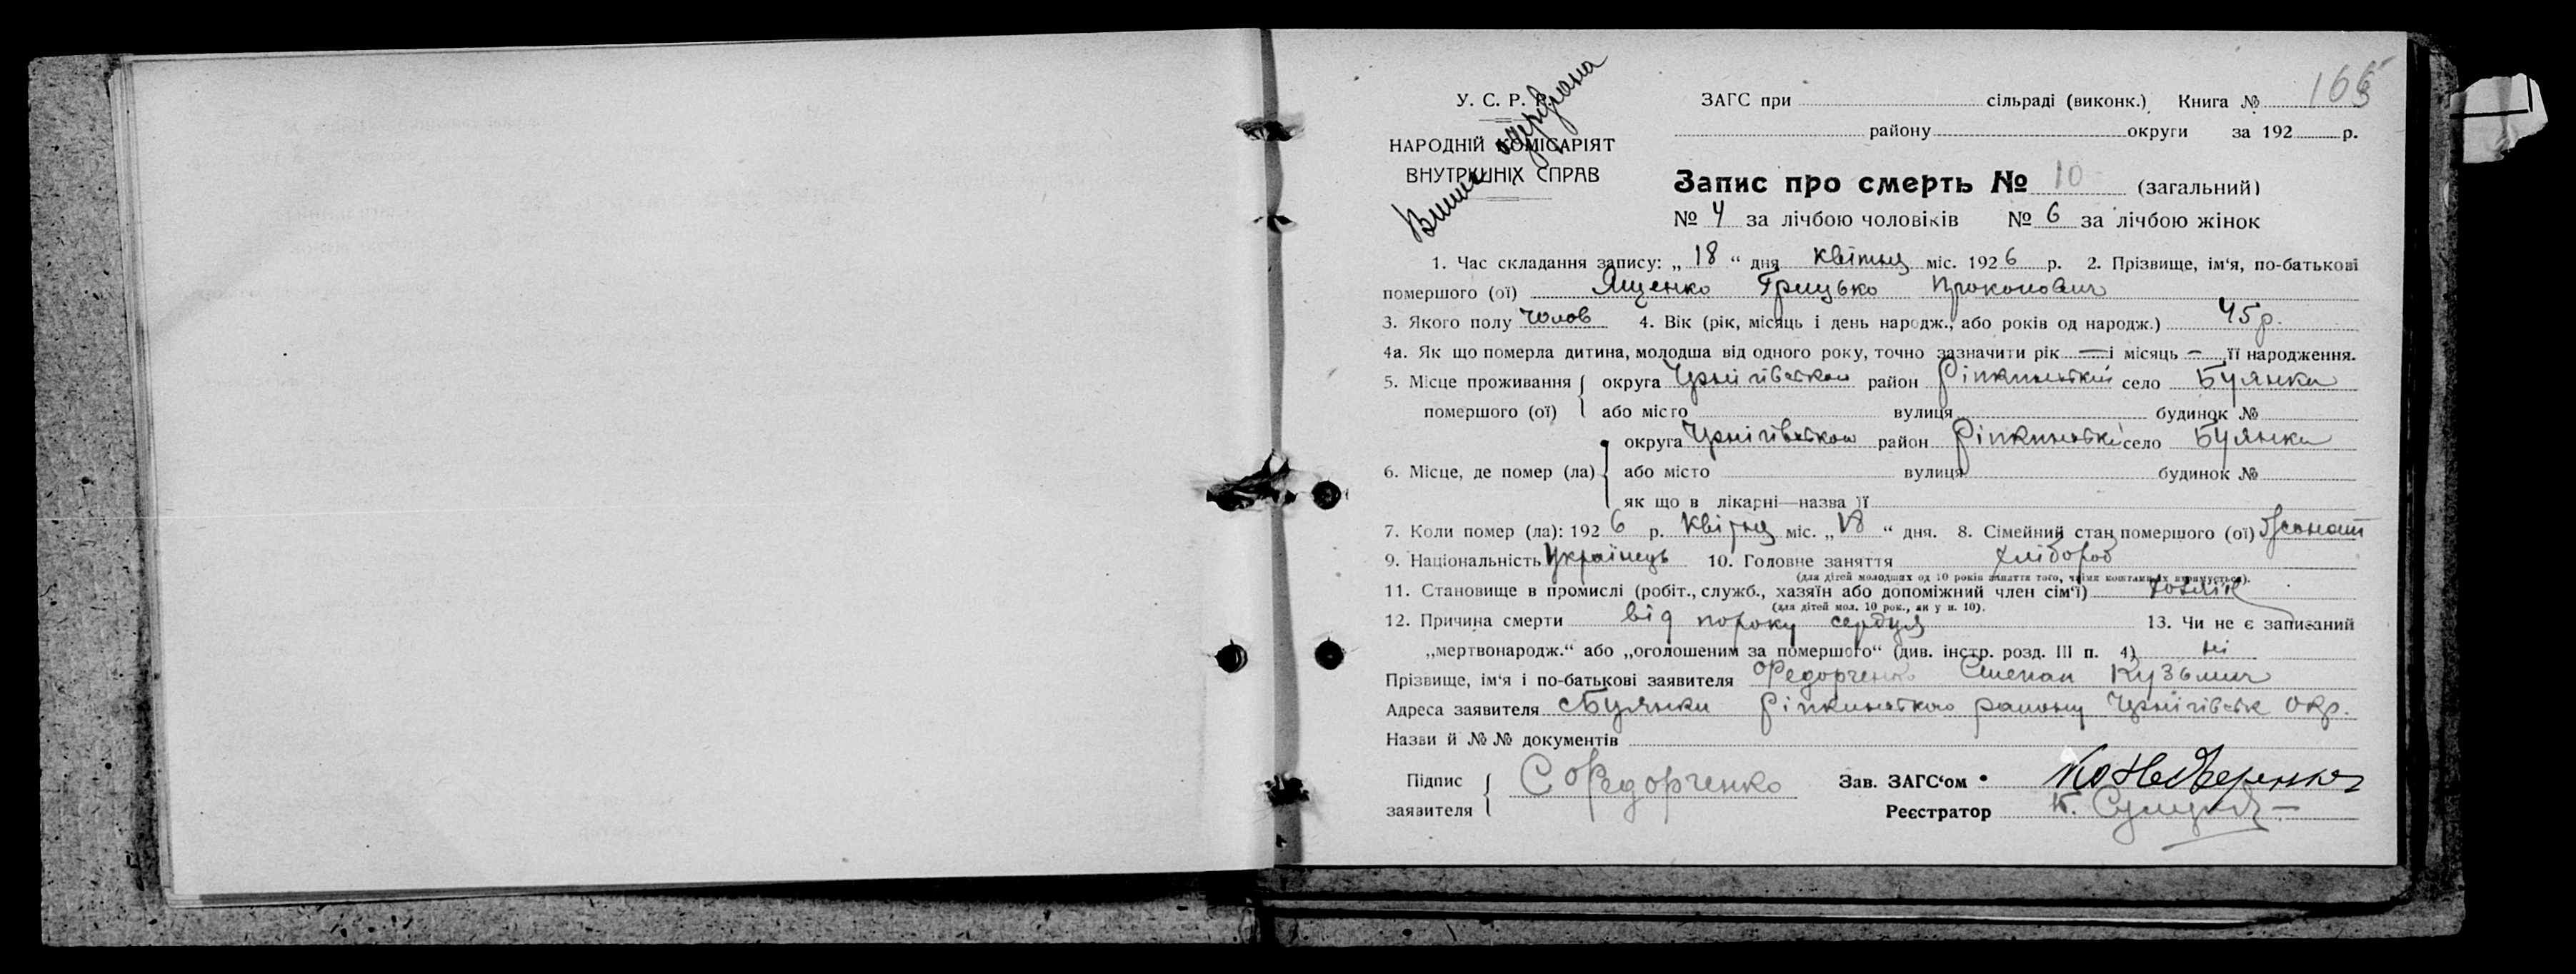 166
У. С. Р. Р.
НАРОДНІЙ КОМІСАРІЯТ
ВНУТРІШНІХ СПРАВ
ЗАГС при сільраді (виконк.) Книга №
району округи за 192 р.
Запис про смерть № 10 (загальний)
№ 4 за лічбою чоловіків № 6 за лічбою жінок
1. Час складання запису: „ 18 “ дня квітня міс. 1926 р. 2. Прізвище, ім‘я, по-батькові
помершого (ої) Ященко Грицько Прокопович
3. Якого полу чолов 4. Вік (рік, місяць і день народж., або років од народж.) 45 р.
4а. Як що померла дитина, молодша від одного року, точно зазначити рік — і місяць — її народження.
5. Місце проживання округа Чернігівської район Ріпкинський село Буянки
помершого (ої) або місто вулиця будинок №
округа Чернігівської район Ріпкинські село Буянки
6. Місце, де помер (ла) або місто вулиця будинок №
як що в лікарні—назва її
7. Коли помер (ла): 1926 р. квітня міс. „ 18 “ дня. 8. Сімейний стан помершого (ої) жонат
9. Національність Українець 10. Головне заняття хлібороб
(для дітей молодших од 10 років заняття того, чиїми коштами їх утримується).
11. Становище в промислі (робіт., служб., хазяїн або допоміжний член сім‘ї)
(для дітей мол. 10 рок., як у п. 10).
12. Причина смерти від пороку сердця 13. Чи не є записаний
„мертвонародж.“ або „оголошеним за помершого“ (див. інстр. розд. III п. 4) ні
Прізвище, ім‘я і по-батькові заявителя Федорченко Степан Кузьмич
Адреса заявителя с Буянки Ріпкинського району Чернігівськ окр.
Назви й №№ документів
Підпис С Федорченко Зав. ЗАГС‘ом
заявителя Реєстратор